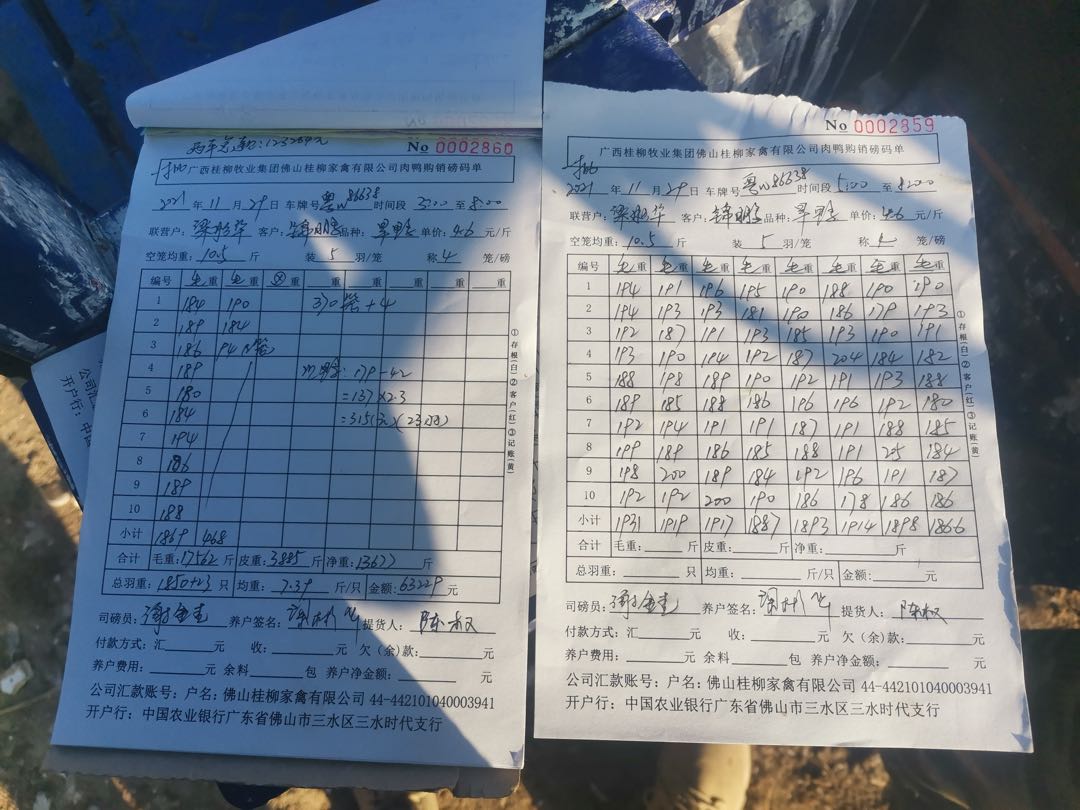 两车总款:123284元
No 0002860
广西桂柳牧业集团佛山桂柳家禽有限公司肉鸭购销磅码单
2021 年 11 月 29 日 车牌号 粤W86638 时间段 至 8:00
联营户: 客户: 锦鹏 品种: 单价: 4.6 元/斤
空笼均重: 10.5 斤 装 5 羽/笼 称 4 笼/磅
编号 毛重 毛重 重 重 重 重 重 重
1 184 190 370笼+4
2 189 184
3 186 94 2笼
4 189 179-42
5 180 =137×2.3
6 184 =315(元)
7 194
8 186
9 189
10 188
小计 1869 468
合计 毛重: 17562 斤 皮重: 3885 斤 净重: 13677 斤
总羽重: 1850+23 只 均重: 7.39 斤/只 金额: 63229 元
司磅员: 养户签名: 提货人: 陈权
付款方式: 汇 元 收: 元 欠(余)款: 元
养户费用: 元 余料 包 养户净金额: 元
公司汇款账号: 户名: 佛山桂柳家禽有限公司 44-442101040003941
开户行: 中国农业银行广东省佛山市三水区三水时代支行
①存根(白)②客户(红)③记账(黄)
No 0002859
广西桂柳牧业集团佛山桂柳家禽有限公司肉鸭购销磅码单
2021 年 11 月 29 日 车牌号 粤W86638 时间段 5:00 至 8:00
联营户: 客户: 锦鹏 品种: 单价: 4.6 元/斤
空笼均重: 10.5 斤 装 5 羽/笼 称 4 笼/磅
编号 毛重 毛重 毛重 毛重 毛重 毛重 毛重 毛重
1 194 191 196 195 190 188 190 190
2 194 193 193 181 190 186 179 193
3 192 187 191 193 185 193 190 191
4 193 190 194 192 187 204 184 182
5 188 198 189 190 192 191 193 188
6 189 185 188 186 196 196 192 180
7 192 194 191 191 187 191 188 185
8 199 189 186 185 188 191 205 184
9 198 200 189 184 192 196 191 187
10 192 192 200 190 186 178 186 186
小计 1931 1919 1917 1887 1893 1914 1898 1866
合计 毛重: 斤 皮重: 斤 净重: 斤
总羽重: 只 均重: 斤/只 金额: 元
司磅员: 养户签名: 提货人: 陈权
付款方式: 汇 元 收: 元 欠(余)款: 元
养户费用: 元 余料 包 养户净金额: 元
公司汇款账号: 户名: 佛山桂柳家禽有限公司 44-442101040003941
开户行: 中国农业银行广东省佛山市三水区三水时代支行
①存根(白)②客户(红)③记账(黄)
公司汇
开户行: 中国